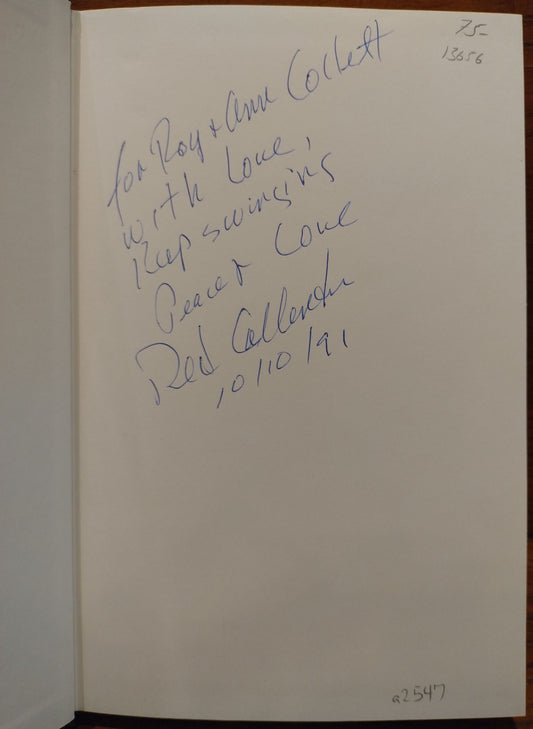 75-
13656
for Roy + Ann Collett
with Love,
Keep swinging
Peace + Love
Red Callender
10/10/91
a2547